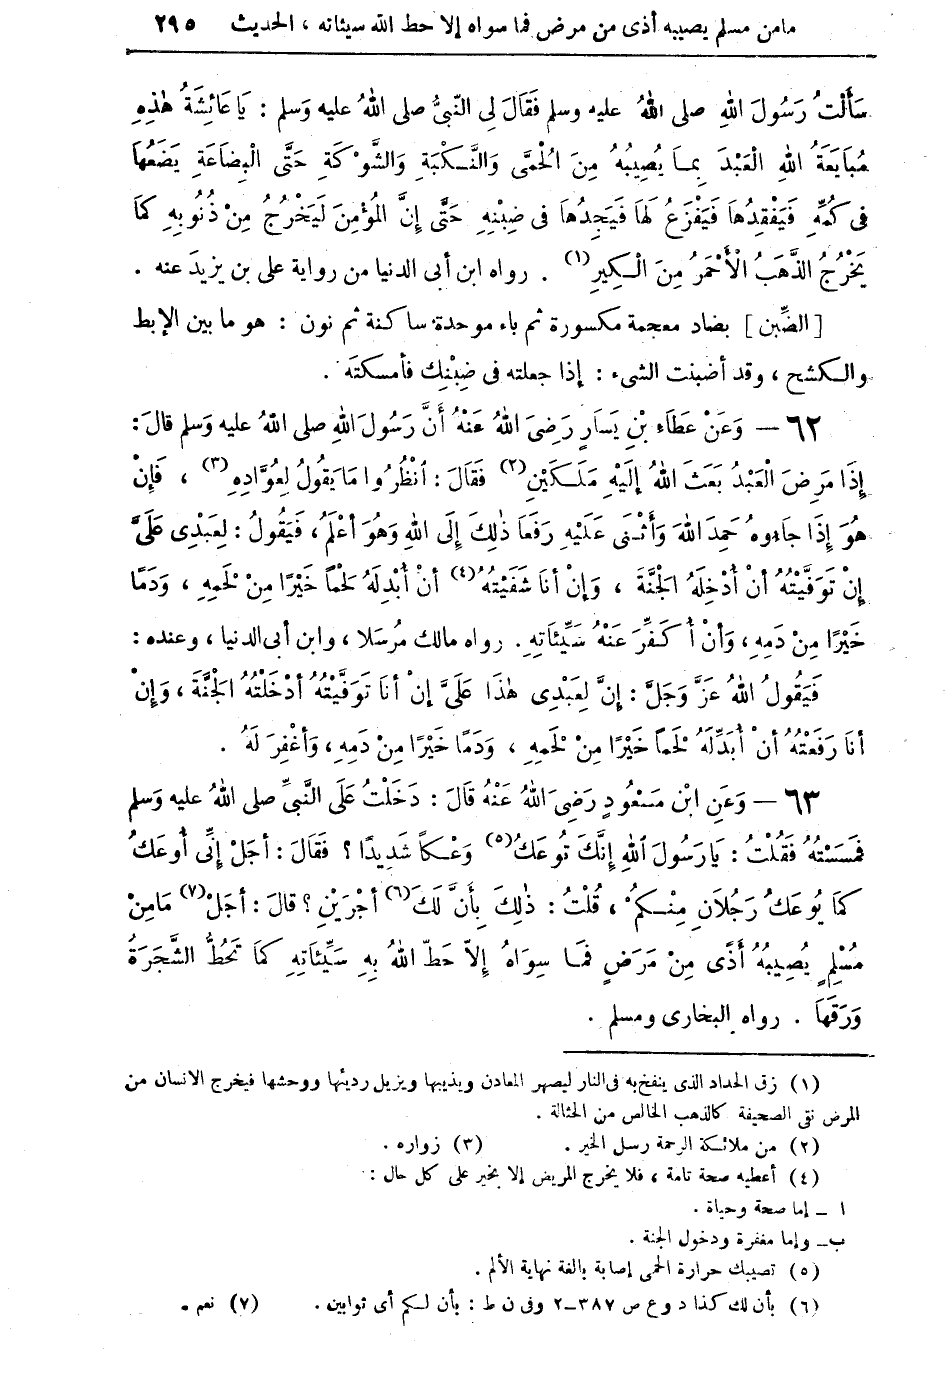 مامن مسلم يصيبه أذى من مرض فما سواه إلا حط الله سيئاته ، الحديث ٢٩٥
سَأَلْتُ رَسُولَ اللهِ صلى اللهُ عليهِ وسلم فَقَالَ لِى النَّبِىُّ صلى اللهُ عليهِ وَسلم : يَا عَائِشَةُ هٰذِهِ
مُبَايَعَةُ اللهِ الْعَبْدَ بِمَـا يُصِيبُهُ مِنَ الْحُمَّى وَالنَّـكْبَةِ وَالشَّوْكَةِ حَتَّى الْبِضَاعَةِ يَضَعُهَا
فِى كُمِّهِ فَيَفْقِدُهَا فَيَفْزَعُ لَهَا فَيَجِدُهَا فِى ضِبْنِهِ حَتَّى إِنَّ الْمُؤْمِنَ لَيَخْرُجُ مِنْ ذُنُوبِهِ كَمَا
يَخْرُجُ الذَّهَبُ الْأَحْمَرُ مِنَ الْـكِيرِ(١) . رواه ابن أبى الدنيا من رواية على بن يزيدَ عنه .
[الضِّبن] بضاد معجمة مكسورة ثم باء موحدة ساكنة ثم نون : هو ما بين الإبط
والـكشح ، وقد أضبنت الشىء : إذا جعلته فى ضِبْنِك فأمسكتَه .
٦٢ — وَعَنْ عَطَاءِ بْنِ يَسَارٍ رَضِىَ اللهُ عَنْهُ أَنَّ رَسُولَ اللهِ صلى اللهُ عليه وَسلم قالَ :
إِذَا مَرِضَ الْعَبْدُ بَعَثَ اللهُ إِلَيْهِ مَلَـكَيْنِ(٢) فَقَالَ : اُنْظُرُوا مَا يَقُولُ لِعُوَّادِهِ(٣) ، فَإِنْ
هُوَ إِذَا جَاءُوهُ حَمِدَ اللهَ وَأَثْـنَى عَلَيْهِ رَفَعَا ذٰلِكَ إِلَى اللهِ وَهُوَ أَعْلَمُ ، فَيَقُولُ : لِعَبْدِى عَلَىَّ
إِنْ تَوَفَّيْتُهُ أَنْ أُدْخِلَهُ الْجَنَّةَ ، وَإِنْ أَنَا شَفَيْتُهُ(٤) أَنْ أُبْدِلَهُ لَحْمًا خَيْرًا مِنْ لَحْمِهِ ، وَدَمًا
خَيْرًا مِنْ دَمِهِ ، وَأَنْ أُكَفِّرَ عَنْهُ سَيِّئَاتِهِ . رواه مالك مُرسَلا ، وابن أبى الدنيا ، وعنده :
فَيَقُولُ اللهُ عَزَّ وَجَلَّ : إِنَّ لِعَبْدِى هٰذَا عَلَىَّ إِنْ أَنَا تَوَفَّيْتُهُ أَدْخَلْتُهُ الْجَنَّةَ ، وَإِنْ
أَنَا رَفَعْتُهُ أَنْ أُبَدِّلَهُ لَحْمًا خَيْرًا مِنْ لَحْمِهِ ، وَدَمًا خَيْرًا مِنْ دَمِهِ ، وَأَغْفِرَ لَهُ .
٦٣ — وَعَنِ ابْنِ مَسْعُودٍ رَضِىَ اللهُ عَنْهُ قَالَ : دَخَلْتُ عَلَى النَّبِىِّ صلى اللهُ عليه وَسلم
فَمَسَسْتُهُ فَقُلْتُ : يَا رَسُولَ اللهِ إِنَّكَ تُوعَكُ(٥) وَعْـكاً شَدِيدًا ؟ فَقَالَ : أَجَلْ إِنِّى أُوعَكُ
كَمَا يُوعَكُ رَجُلَانِ مِنْـكُمْ ، قُلْتُ : ذٰلِكَ بِأَنَّ لَكَ(٦) أَجْرَيْنِ ؟ قالَ : أَجَلْ(٧) مَا مِنْ
مُسْلِمٍ يُصِيبُهُ أَذًى مِنْ مَرَضٍ فَمَـا سِوَاهُ إِلاَّ حَطَّ اللهُ بِهِ سَيِّئَاتِهِ كَمَا تَحُطُّ الشَّجَرَةُ
وَرَقَهَا . رواه البخارى ومسلم .
(١) زق الحداد الذى ينفخ به فى النار ليصهر المعادن ويذيبها ويزيل رديئها ووحشها فيخرج الانسان من
المرض نقى الصحيفة كالذهب الخالص من الحثالة .
(٢) من ملائـكة الرحمة رسل الخير . (٣) زواره .
(٤) أعطيه صحة تامة ، فلا يخرج المريض إلا بخير على كل حال :
ا ـ إما صحة وحياة .
ب ـ وإما مغفرة ودخول الجنة .
(٥) تصيبك حرارة الحمى إصابة بالغة نهاية الألم .
(٦) بأن لك كذا د وع ص ٣٨٧ـ٢ وفى ن ط : بأن لـكم أى ثوابين . (٧) نعم .